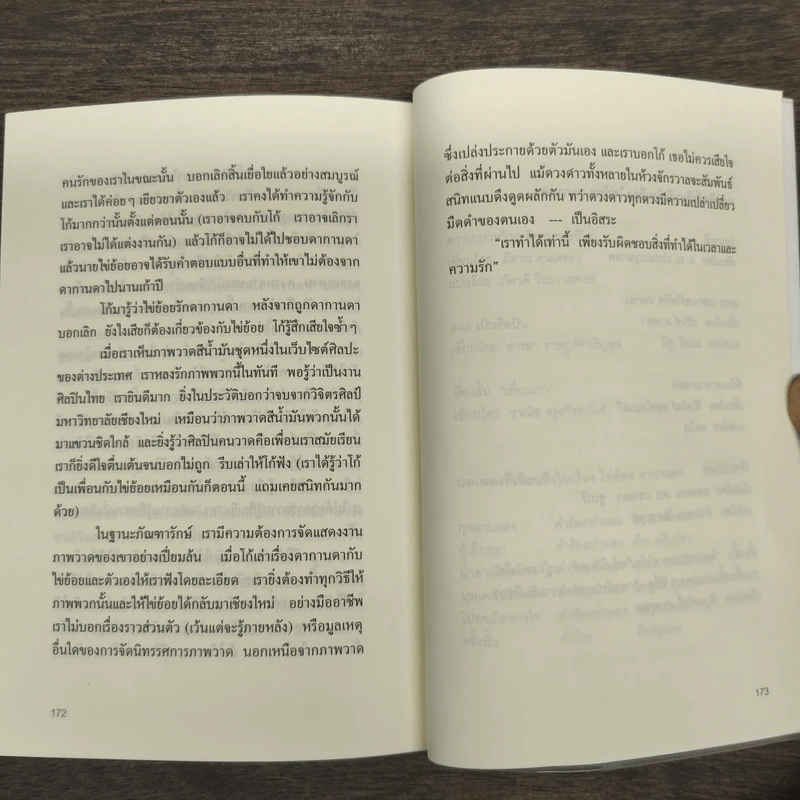 คนรักของเราในขณะนั้น บอกเลิกสิ้นเยื่อใยแล้วอย่างสมบูรณ์
และเราได้ค่อยๆ เยียวยาตัวเองแล้ว เราคงได้ทำความรู้จักกับ
โก้มากกว่านั้นตั้งแต่ตอนนั้น (เราอาจคบกับโก้ เราอาจเลิกรา
เราอาจไม่ได้แต่งงานกัน) แล้วโก้ก็อาจไม่ได้ไปชอบดากานดา
แล้วนายไข่ย้อยอาจได้รับคำตอบแบบอื่นที่ทำให้เขาไม่ต้องจาก
ดากานดาไปนานเก้าปี
โก้มารู้ว่าไข่ย้อยรักดากานดา หลังจากถูกดากานดา
บอกเลิก ยังไงเสียก็ต้องเกี่ยวข้องกับไข่ย้อย โก้รู้สึกเสียใจซ้ำๆ
เมื่อเราเห็นภาพวาดสีน้ำมันชุดหนึ่งในเว็บไซต์ศิลปะ
ของต่างประเทศ เราหลงรักภาพพวกนี้ในทันที พอรู้ว่าเป็นงาน
ศิลปินไทย เรายินดีมาก ยิ่งในประวัติบอกว่าจบจากวิจิตรศิลป์
มหาวิทยาลัยเชียงใหม่ เหมือนว่าภาพวาดสีน้ำมันพวกนั้นได้
มาแขวนชิดใกล้ และยิ่งรู้ว่าศิลปินคนวาดคือเพื่อนเราสมัยเรียน
เราก็ยิ่งดีใจตื่นเต้นจนบอกไม่ถูก รีบเล่าให้โก้ฟัง (เราได้รู้ว่าโก้
เป็นเพื่อนกับไข่ย้อยเหมือนกันก็ตอนนี้ แถมเคยสนิทกันมาก
ด้วย)
ในฐานะภัณฑารักษ์ เรามีความต้องการจัดแสดงงาน
ภาพวาดของเขาอย่างเปี่ยมล้น เมื่อโก้เล่าเรื่องดากานดากับ
ไข่ย้อยและตัวเองให้เราฟังโดยละเอียด เรายิ่งต้องทำทุกวิธีให้
ภาพพวกนั้นและให้ไข่ย้อยได้กลับมาเชียงใหม่ อย่างมืออาชีพ
เราไม่บอกเรื่องราวส่วนตัว (เว้นแต่จะรู้ภายหลัง) หรือมูลเหตุ
อื่นใดของการจัดนิทรรศการภาพวาด นอกเหนือจากภาพวาด
172
ซึ่งเปล่งประกายด้วยตัวมันเอง และเราบอกโก้ เธอไม่ควรเสียใจ
ต่อสิ่งที่ผ่านไป แม้ดวงดาวทั้งหลายในห้วงจักรวาลจะสัมพันธ์
สนิทแนบดึงดูดผลักกัน ทว่าดวงดาวทุกดวงมีความเปล่าเปลี่ยว
มืดดำของตนเอง --- เป็นอิสระ
“เราทำได้เท่านี้ เพียงรับผิดชอบสิ่งที่ทำได้ในเวลาและ
ความรัก”
173